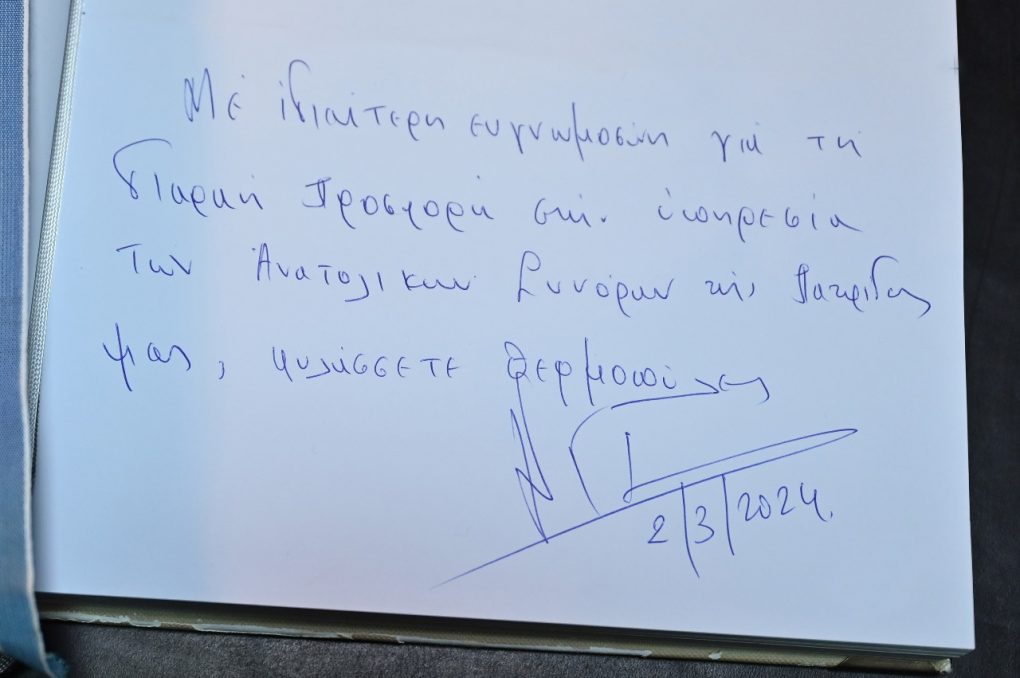 Με ιδιαίτερη ευγνωμοσύνη για τη
διαρκή προσφορά στην υπηρεσία
των Ανατολικών Συνόρων της Πατρίδος
μας, φυλάσσετε Θερμοπύλες
2/3/2024.